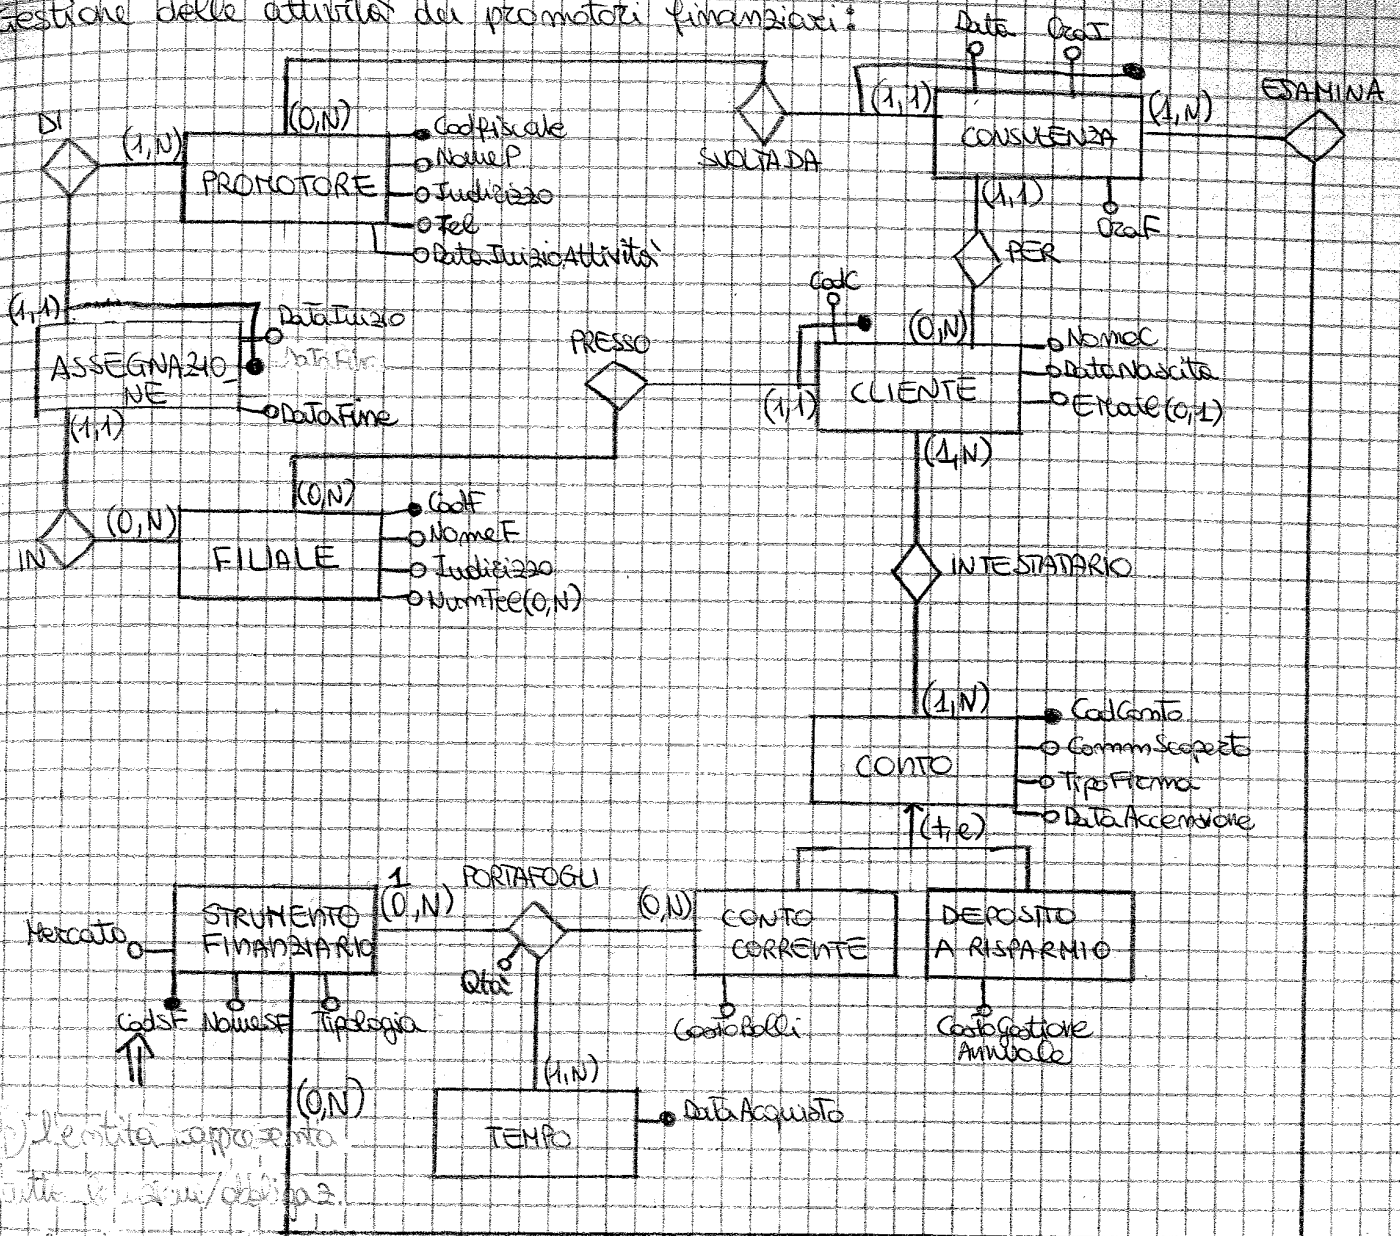 Gestione delle attività dei promotori finanziari:
Data
OraI
ESAMINA
DI
(1,N)
(0,N)
PROMOTORE
CodFiscale
NomeP
Indirizzo
Tel
DataInizioAttività
SVOLTA DA
(1,1)
CONSULENZA
(1,N)
(1,1)
OraF
PER
(1,1)
ASSEGNAZIO_
NE
DataInizio
DataFine
(1,1)
PRESSO
CodC
(0,N)
(1,1)
CLIENTE
NomeC
DataNascita
EMail(0,1)
(1,N)
IN
(0,N)
(0,N)
FILIALE
CodF
NomeF
Indirizzo
NumTel(0,N)
INTESTATARIO
(1,N)
CONTO
CodConto
CommScoperto
TipoFirma
DataAccensione
(t,e)
Mercato
STRUMENTO
FINANZIARIO
1
(0,N)
PORTAFOGLI
Qtà
(0,N)
CONTO
CORRENTE
DEPOSITO
A RISPARMIO
CodSF
NomeSF
Tipologia
CostoBolli
CostoGestione
Annuale
(0,N)
(1,N)
TEMPO
DataAcquisto
l'entità rappresenta